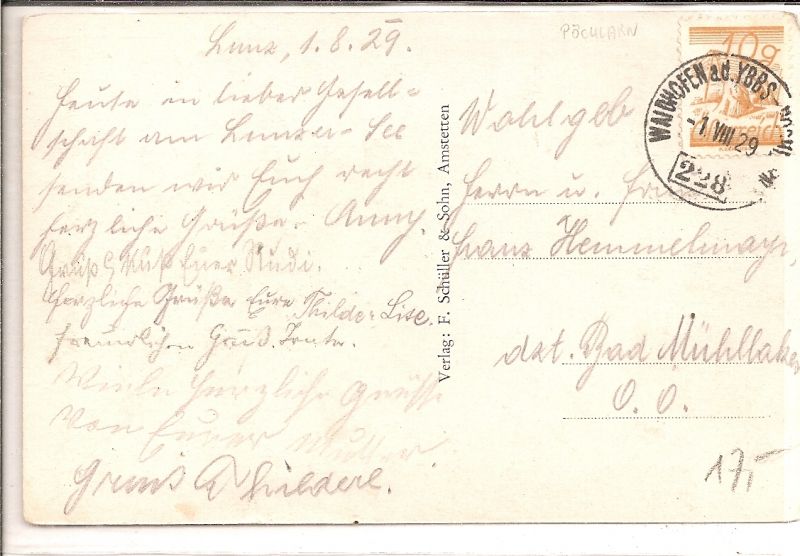 Lunz, 1.8.29.
Heute in lieber Gesell-
schaft am Lunzer-See
senden wir Euch recht
herzliche Grüße. Anny.
Gruß & Kuß Euer Rudi.
herzliche Grüße Eure Thilde. Lise.
freundlichen Gruß. Tante.
Viele herzliche Grüsse
von Eurer Mutter
Gruß Thilderl.
Verlag: F. Schüller & Sohn, Amstetten
PÖCHLARN
10g
WAIDHOFEN a.d. YBBS
-1.VIII.29
228
Wohlgeb
Herrn u. Frau
Hans Hemmelmayr,
dzt. Bad Mühllaken
O. O.
17,-